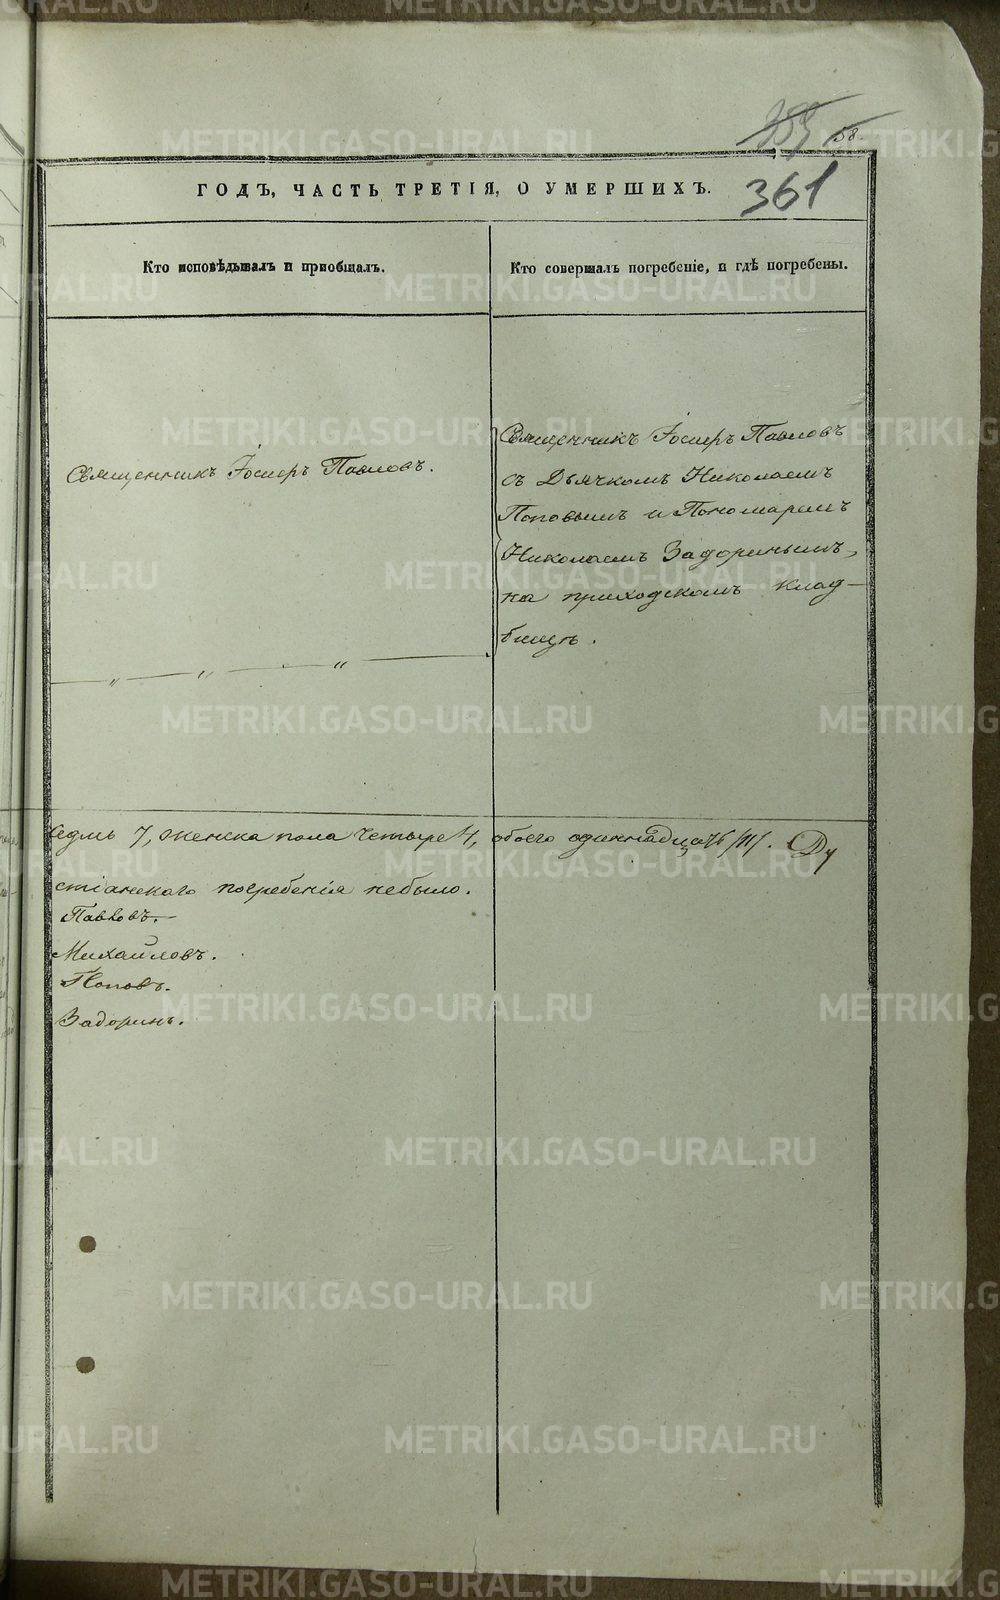 58
361
ГОДЪ, ЧАСТЬ ТРЕТІЯ, О УМЕРШИХЪ.
Кто исповѣдывалъ и пріобщалъ.
Кто совершалъ погребеніе, и гдѣ погребены.
Священникъ Іосифъ Павловъ.
Священникъ Іосифъ Павловъ
съ Дьячкомъ Николаемъ
Поповымъ и Пономаремъ
Николаемъ Задоринымъ,
на приходскомъ клад-
бищѣ.
седмь 7, женска пола четыре 4, обоего одиннадцать /11/.
стіанскаго погребенія небыло.
Павловъ.
Михайловъ.
Поповъ.
Задоринъ.
METRIKI.GASO-URAL.RU